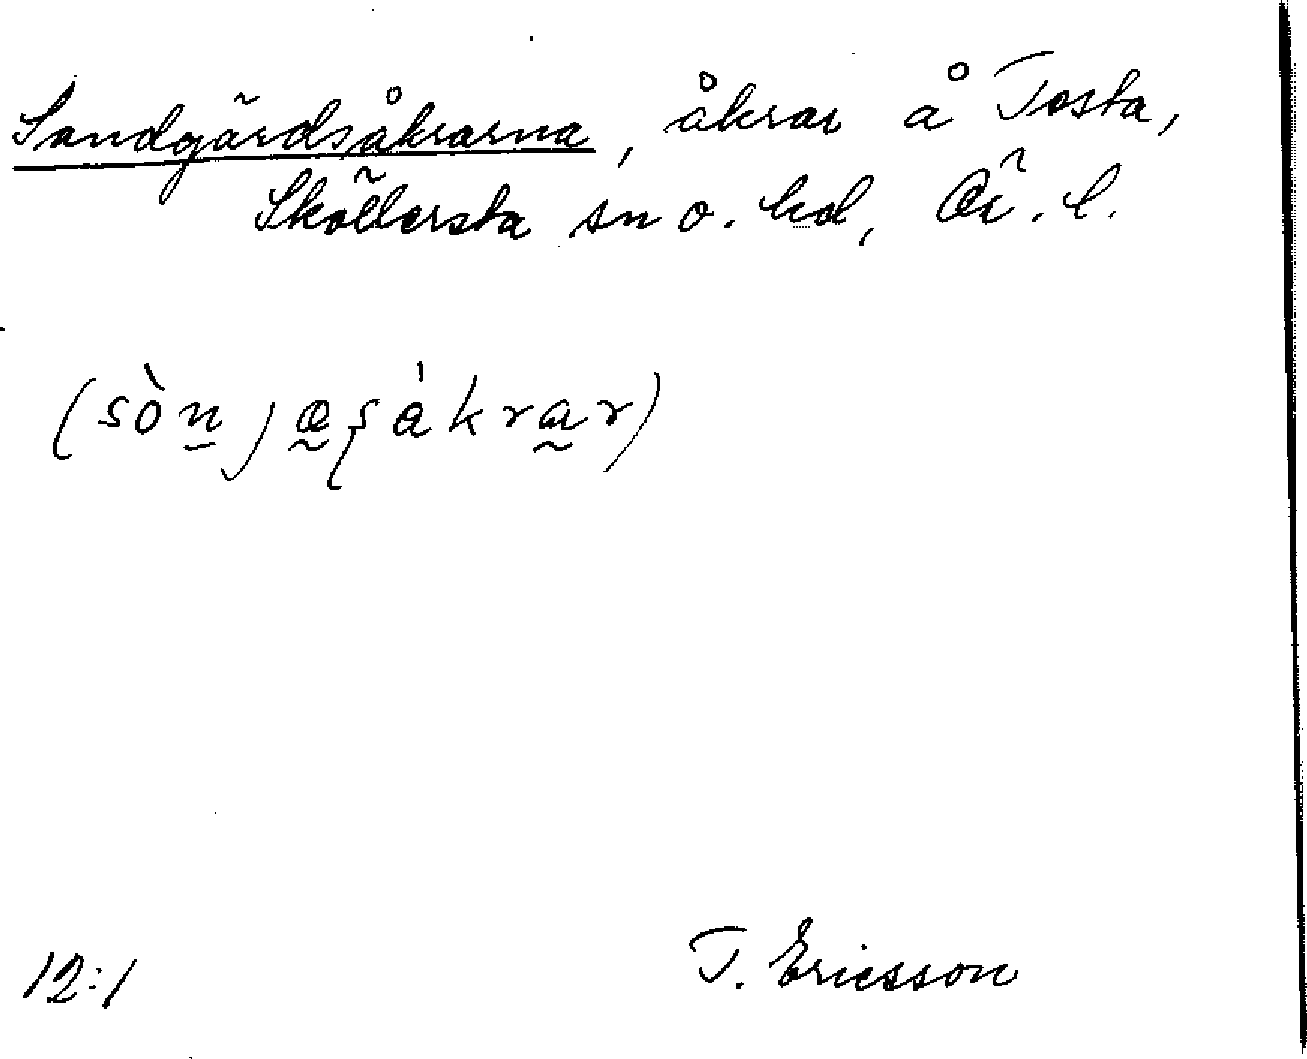 Sandgärdsåkrarna, åkrar å Tosta,
Sköllersta sn o. hd, Ör. l.
(sòn̲jæ̰ʂåkra̰r)
12:1
T. Ericsson